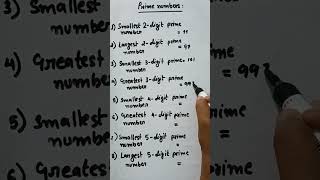 Prime numbers:
1) Smallest 2-digit prime
number = 11
2) Largest 2-digit prime
number = 97
3) Smallest 3-digit prime = 101
number
4) Greatest 3-digit prime
number = 99
5) Smallest 4-digit prime
number =
6) Greatest 4-digit prime
number =
7) Smallest 5-digit prime
number =
8) Largest 5-digit prime
number =